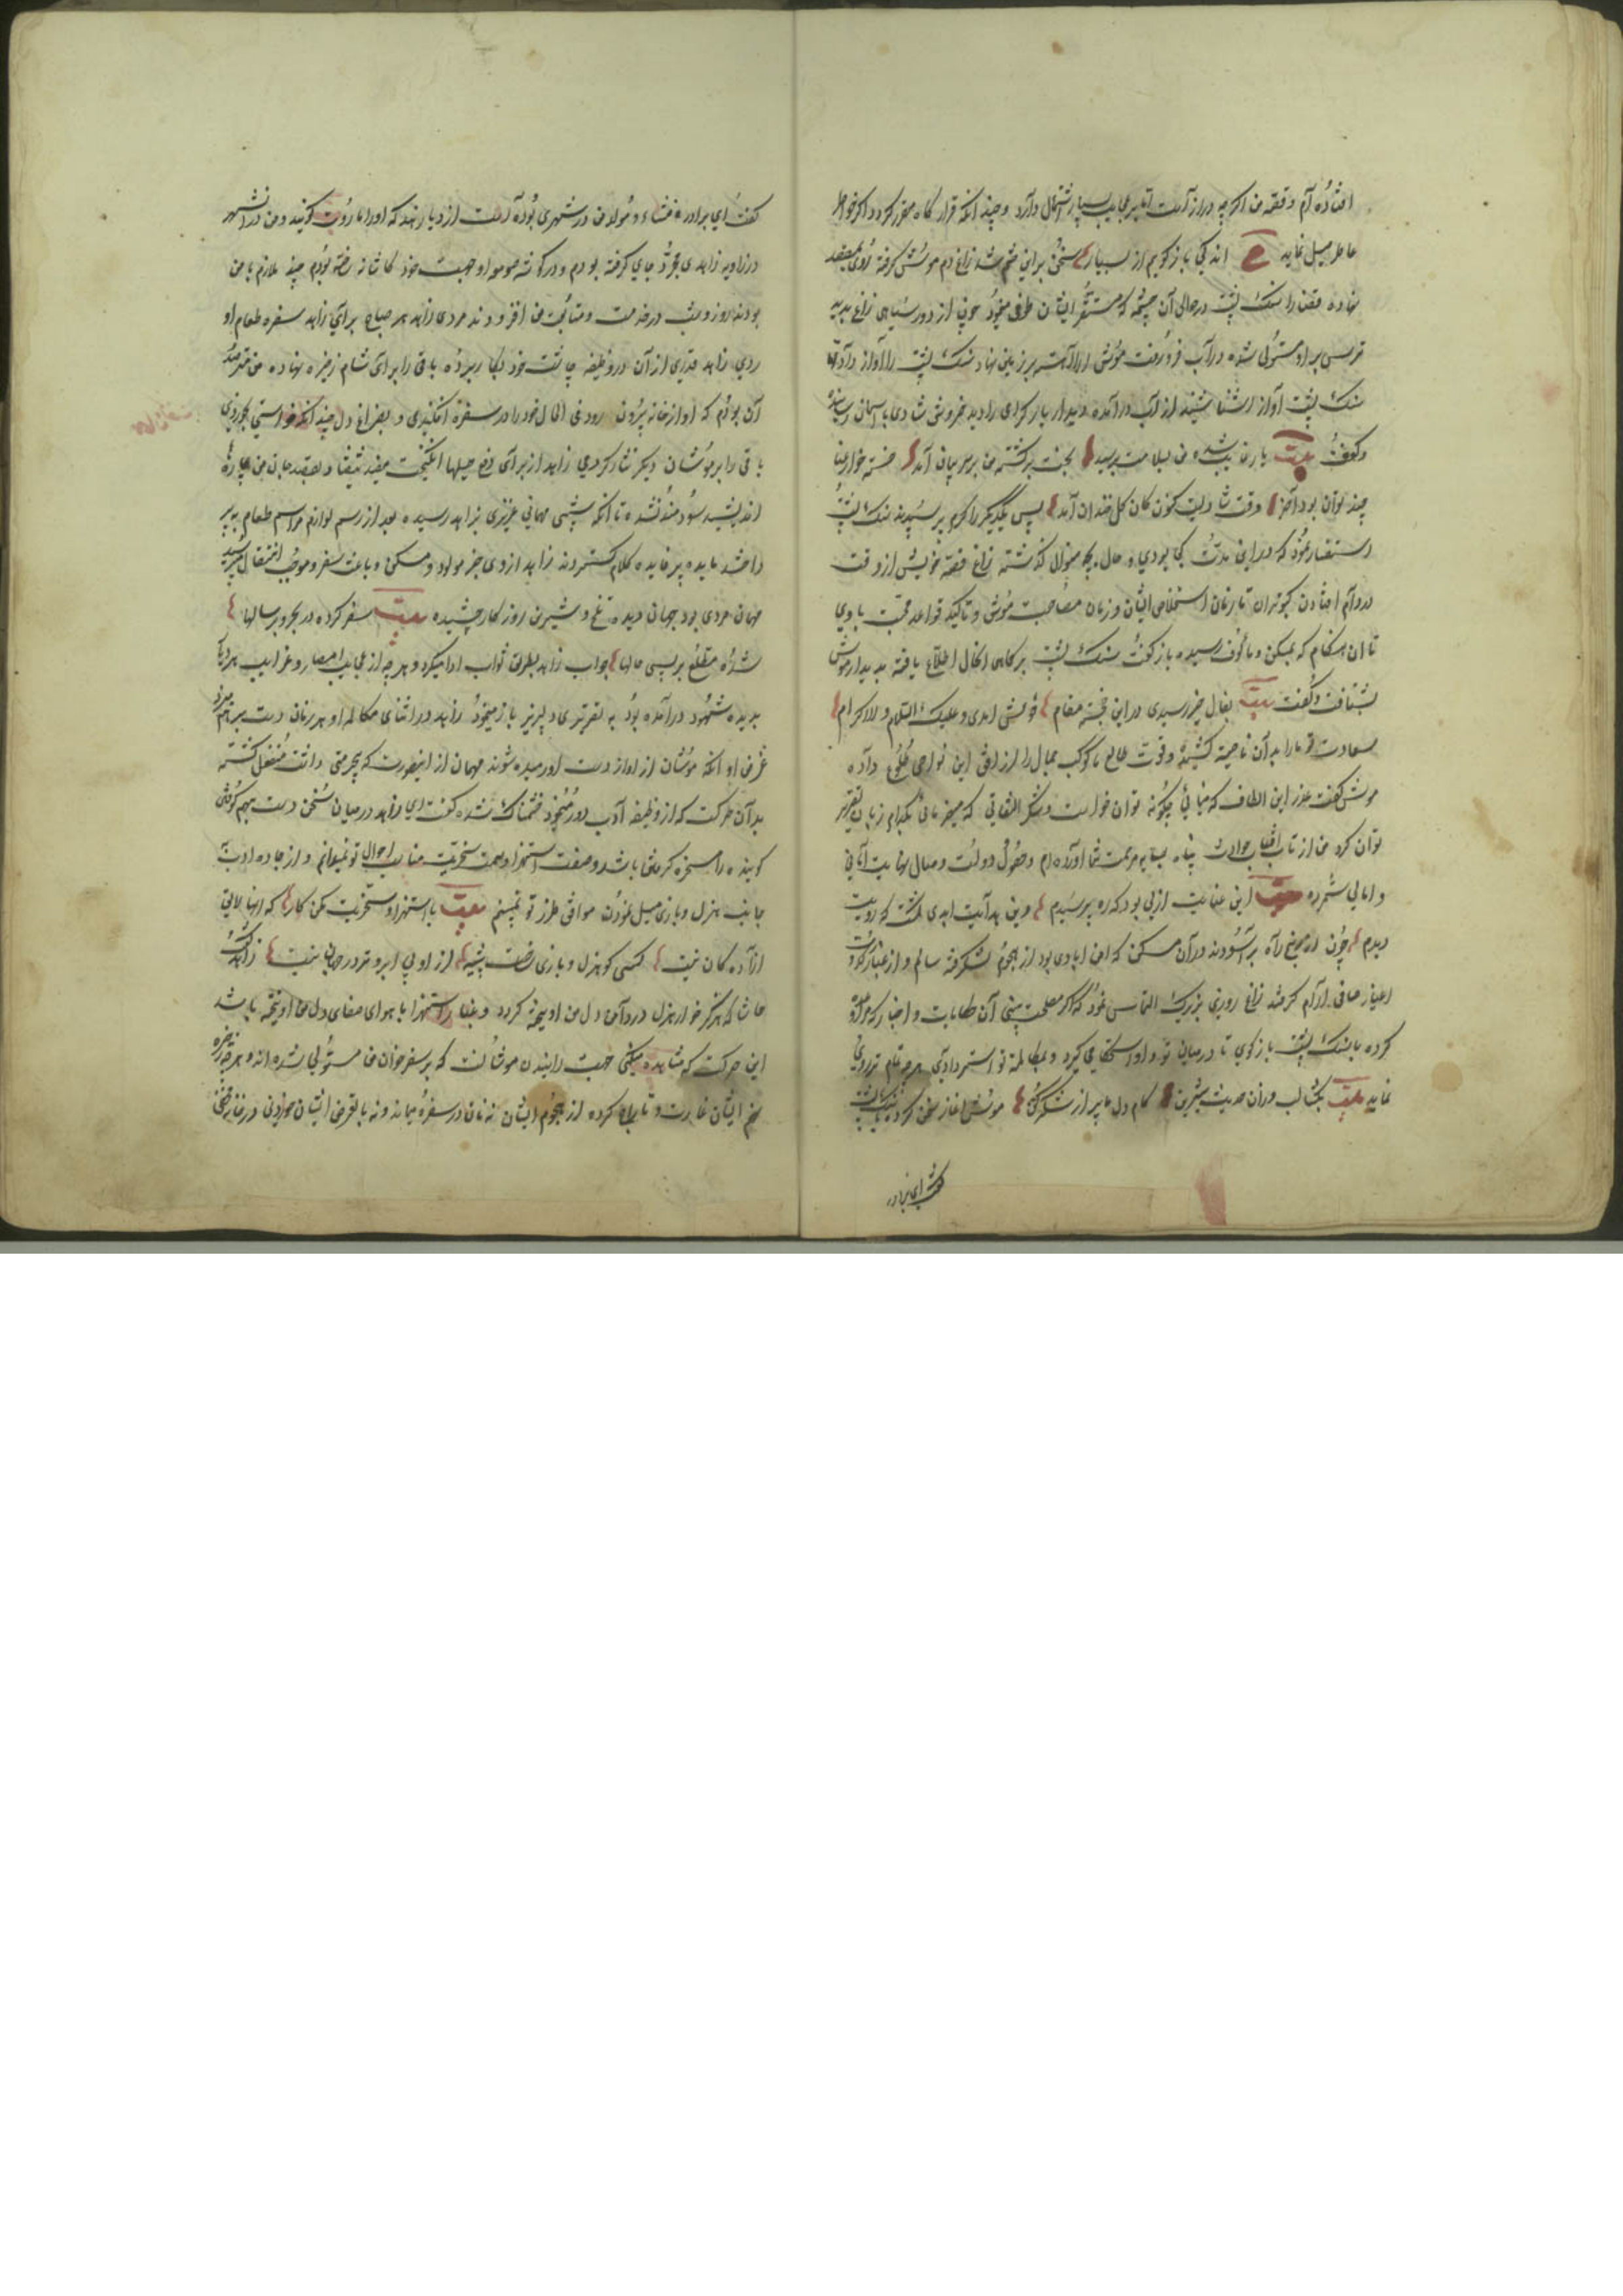 افتاده‌ام و قصه من اگرچه دراز است اما بر عجایب بسیار اشتمال دارد و چندانکه قرار گاه مقرر گردد اگر خواطر
خاطر میل نماید اندکی باز گویم از بسیار سخن برین ختم شد زاغ دم موش گرفته روی بمقصد
نهاده قضا را سنک پشت در حوالی آن چشمه که مستقر ایشان طوف مینمود چون از دور سیاهی زاغ بدید
ترسی بر او مستولی شده در آب فرو رفت موش از هوا آهسته بر زمین نهاد سنک پشت را آواز داد
سنک پشت آواز آشنا شنید از آب بر آمده دیدار یار گرامی را دید خروش شادی باسمان رسانید
و گفت بیت یار غایب شده من بسلامت برسید بخت برگشته من بر سر پیمان آمد
چند توان بود آخر وقت شادیست کنون کان گل خندان آمد پس یکدیگر را گرم بپرسیدند سنک پشت
استفسار نمود که درین مدت کجا بودی و حال بچه منوال گذشته زاغ قصه خویش از وقت
در دام افتادن کبوتران تا زمان استخلاص ایشان و زمان مصاحبت موش و تاکید قواعد محبت با وی
تا آن هنگام که بمسکن و مالوف رسیده باز گفت سنک پشت بر کماهی الحال اطلاع یافته بدیدار موش
بشتافت و گفت بیت بفال خیر رسیدی درین خجسته مقام قدومش اهدی و علیک السلام و الاکرام
سعادت تو ما را بدان ناحیت کشید و قوت طالع ما کوکب جمال را از افق این نواحی طلوع داده
موش گفت عذر این الطاف که مینمائی چگونه توان خواست و شکر التفاتی که میفرمائی بکدام زبان تقریر
توان کرد من از تاب آفتاب حوادث پناه بسایه مرحمت شما آورده‌ام و حصول دولت وصال نهایت آمانی
و امالی شمرده این عنایت ازلی بود که ره پرسیدم وین هدایت ابدی گشت که رویت
دیدم چون از رنج راه بر آسودند در آن مسکن که امن آبادی بود از هجوم لشکر فتنه سالم و از غبار کدورت
اغیار صافی آرام گرفتند زاغ روبزی بزیرک التماس نمود که اگر مصلحت بینی آن حکایات و اخبار که وعده
کرده با سنک پشت باز گوی تا در میان تو و او استحکامی گیرد و بمکالمه تو استیناس داد هر چه تمام تر روی
نماید بیت بکشا لب و زان حدیث شیرین کام دل ما پر از شکر کن موش آغاز سخن کرد با سنک پشت
گفت ای برادر
گفت ای برادر منشاء و مولد من در شهری بوده است از دیار هند که او را ماروت گویند و من در ان شهر
در زاویه زاهدی مجرد جای گرفته بودم و در گوشه صومعه او جهت خود کاشانه ساخته بودم چند ملازم با من
بودند روز و شب در خدمت و متابعت من افزودند مردی زاهد هر صباح برای زاهد سفره طعام آو
ردی زاهد قدری از آن در وظیفه چاشت خود بکار برده باقی را برای شام ذخیره نهاده من مترصد
آن بودم که او از خانه بیرون رود فی الحال خود را در سفره افکندی و بفراغ دل چندانکه خواستی بخوردی
باقی را بر موشان دیگر نثار کردمی زاهد از برای دفع حیلها انگیخت مفید نیفتاد و بقصد جان من چاره‌ها
اندیشید سود مند نشد تا آنکه شبی مهمانی عزیزی بزاهد رسیده بعد از رسم لوازم مراسم طعام بپر
داختند مایده پر فایده کلام گستردند زاهد از وی خبر مولود و مسکن و باعث سفر و موجب انتقال پرسید
مهمان مردی بود جهان دیده تلخ و شیرین روزگار چشیده بیت سفر کرده در بحر و بر سالها
شده مطلع بر بسی حالها جواب زاهد بطریق ثواب ادا میکرد و هر چه از عجایب امصار و غرایب هر دیار
بدیده شهود در آمده بود به تقریر دلپذیر باز مینمود زاهد در اثنای مکالمه او هر زمان دست بر هم میزد
غرض او آنکه موشان از آواز دست او رمیده شوند مهمان از اینصورت که بیحرمتی داشت منفعل گشته
بدان حرکت که از وظیفه ادب دور مینمود خشمناک شده گفت ای زاهد در میان سخن دست بهم کوفتن
گوینده را مسخره کردن باشد و صفت استهزا و سمت سخریت مناسب احوال تو نمیدانم و از جاده ادب
بجانب هزل و بازی میل نمودن موافق طرز تو نمیبینم بیت باستهزا و سخریت مکن کار که اینها لایق
آزاده گان نیست کسی کو هزل و بازی ساخت پیشه از او بی آبرو تر در جهان نیست زاهد گفت
حاشا که هرگز خار هزل در دامن دل من آویخته گردد و غبار استهزا با هوای صفای دل من آمیخته باشد
این حرکت که مشاهده میکنی جهت رانیدن موشانست که بر سفر خوان من مستولی شده اند و هر چه ذخیره
نهم ایشان غارت و تاراج کرده از هجوم ایشان نه نان در سفره میماند و نه با تعرض ایشان خوردنی در خانه